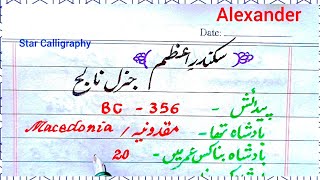 Alexander
Star Calligraphy
Date:
سکندرِ اعظم
جنرل نالج
پیدائش - 356 - BC
بادشاہ تھا - مقدونیہ / Macedonia
بادشاہ بنا کس عمر میں - 20